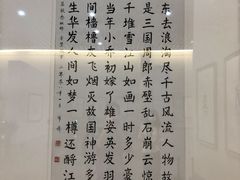 东去浪淘尽千古风流人物故
是三国周郎赤壁乱石崩云惊
千堆雪江山如画一时多少豪
当年小乔初嫁了雄姿英发羽
间樯橹灰飞烟灭故国神游多
生华发人间如梦一樽还酹江